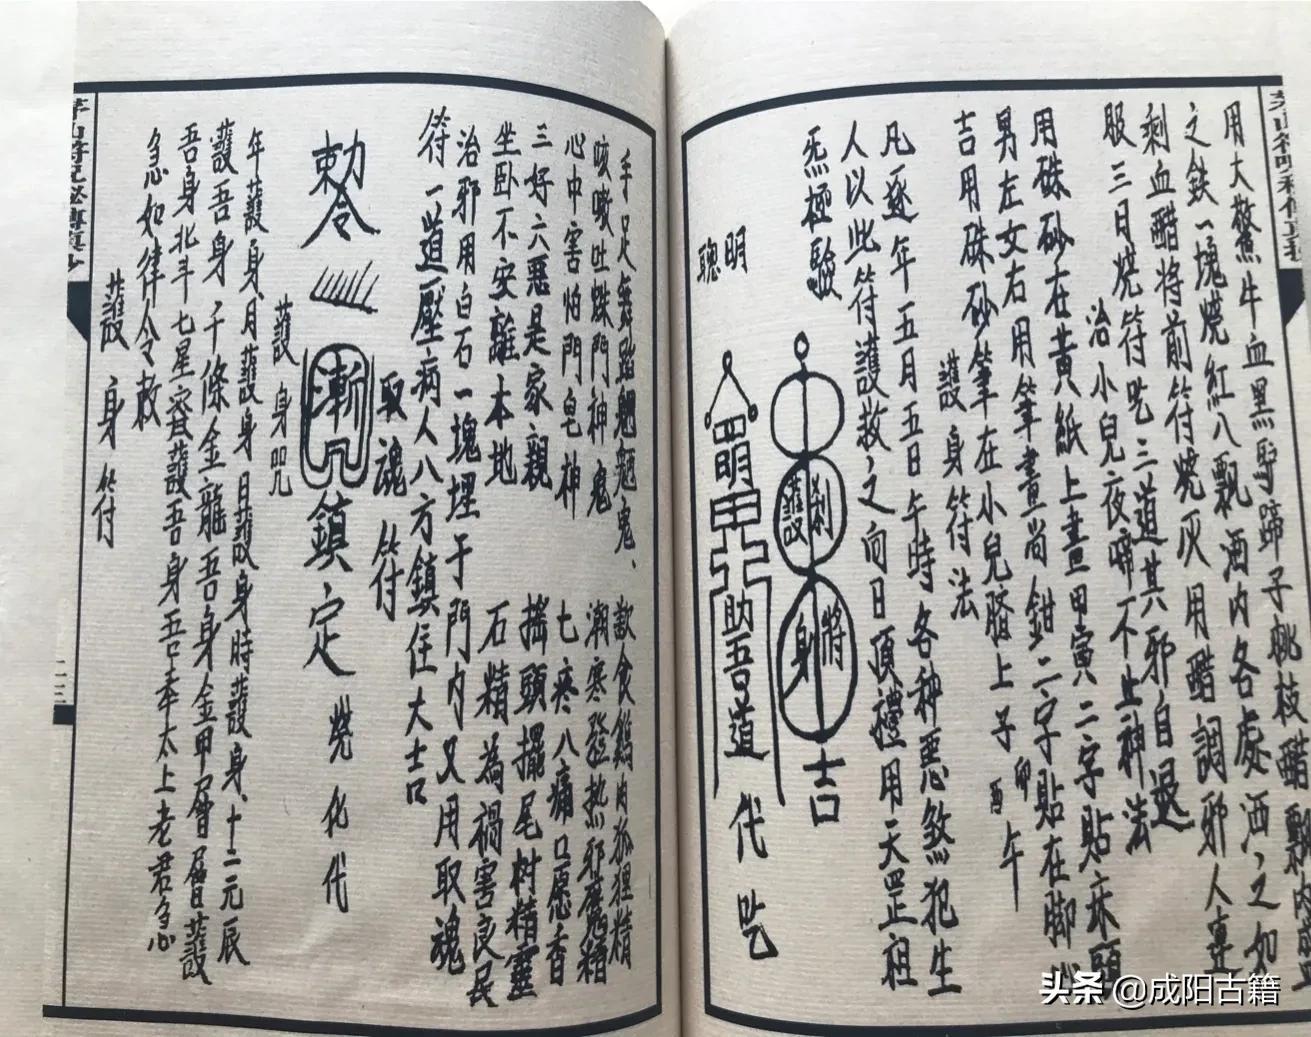 用大驚牛血黑馿蹄子桃枝醋瓢內
之鉄一塊燒紅八瓢酒內各處洒之如
剩血醋將前符燒灰用醋調邪人連
服三日燒符吃三道其邪自退
治小兒夜啼不止神法
用硃砂在黃紙上畫甲寅二字貼床頭
男左女右用筆畫尚鉗二字貼在脚心
吉用硃砂筆在小兒臍上子卯酉午
護身符法
凡逐年五月五日午時各种惡煞犯生
人以此符護救之向日頂禮用天罡祖
炁極驗
護
將身
吉
聰明
吾道
代吃
手足舞蹈魍魎鬼、歡食鷄肉狐狸精
咳嗽吐蛛門神鬼 潮寒發热邪魔精
心中害怕門皂神 七疼八痛口愿香
三好六惡是家親 搖頭擺尾树精靈
坐卧不安離本地 石精為禍害良民
治邪用白石一塊埋于門內又用取魂
符一道壓病人八方鎮住大吉
取魂符
勅令
鎮定
燒化代
護身咒
年護身、月護身日護身時護身、十二元辰
護吾身千條金龍吾身金甲層層護
吾身北斗七星容護吾身吾奉太上老君急
急如律令敕
護身符
二三
头条 @成阳古籍